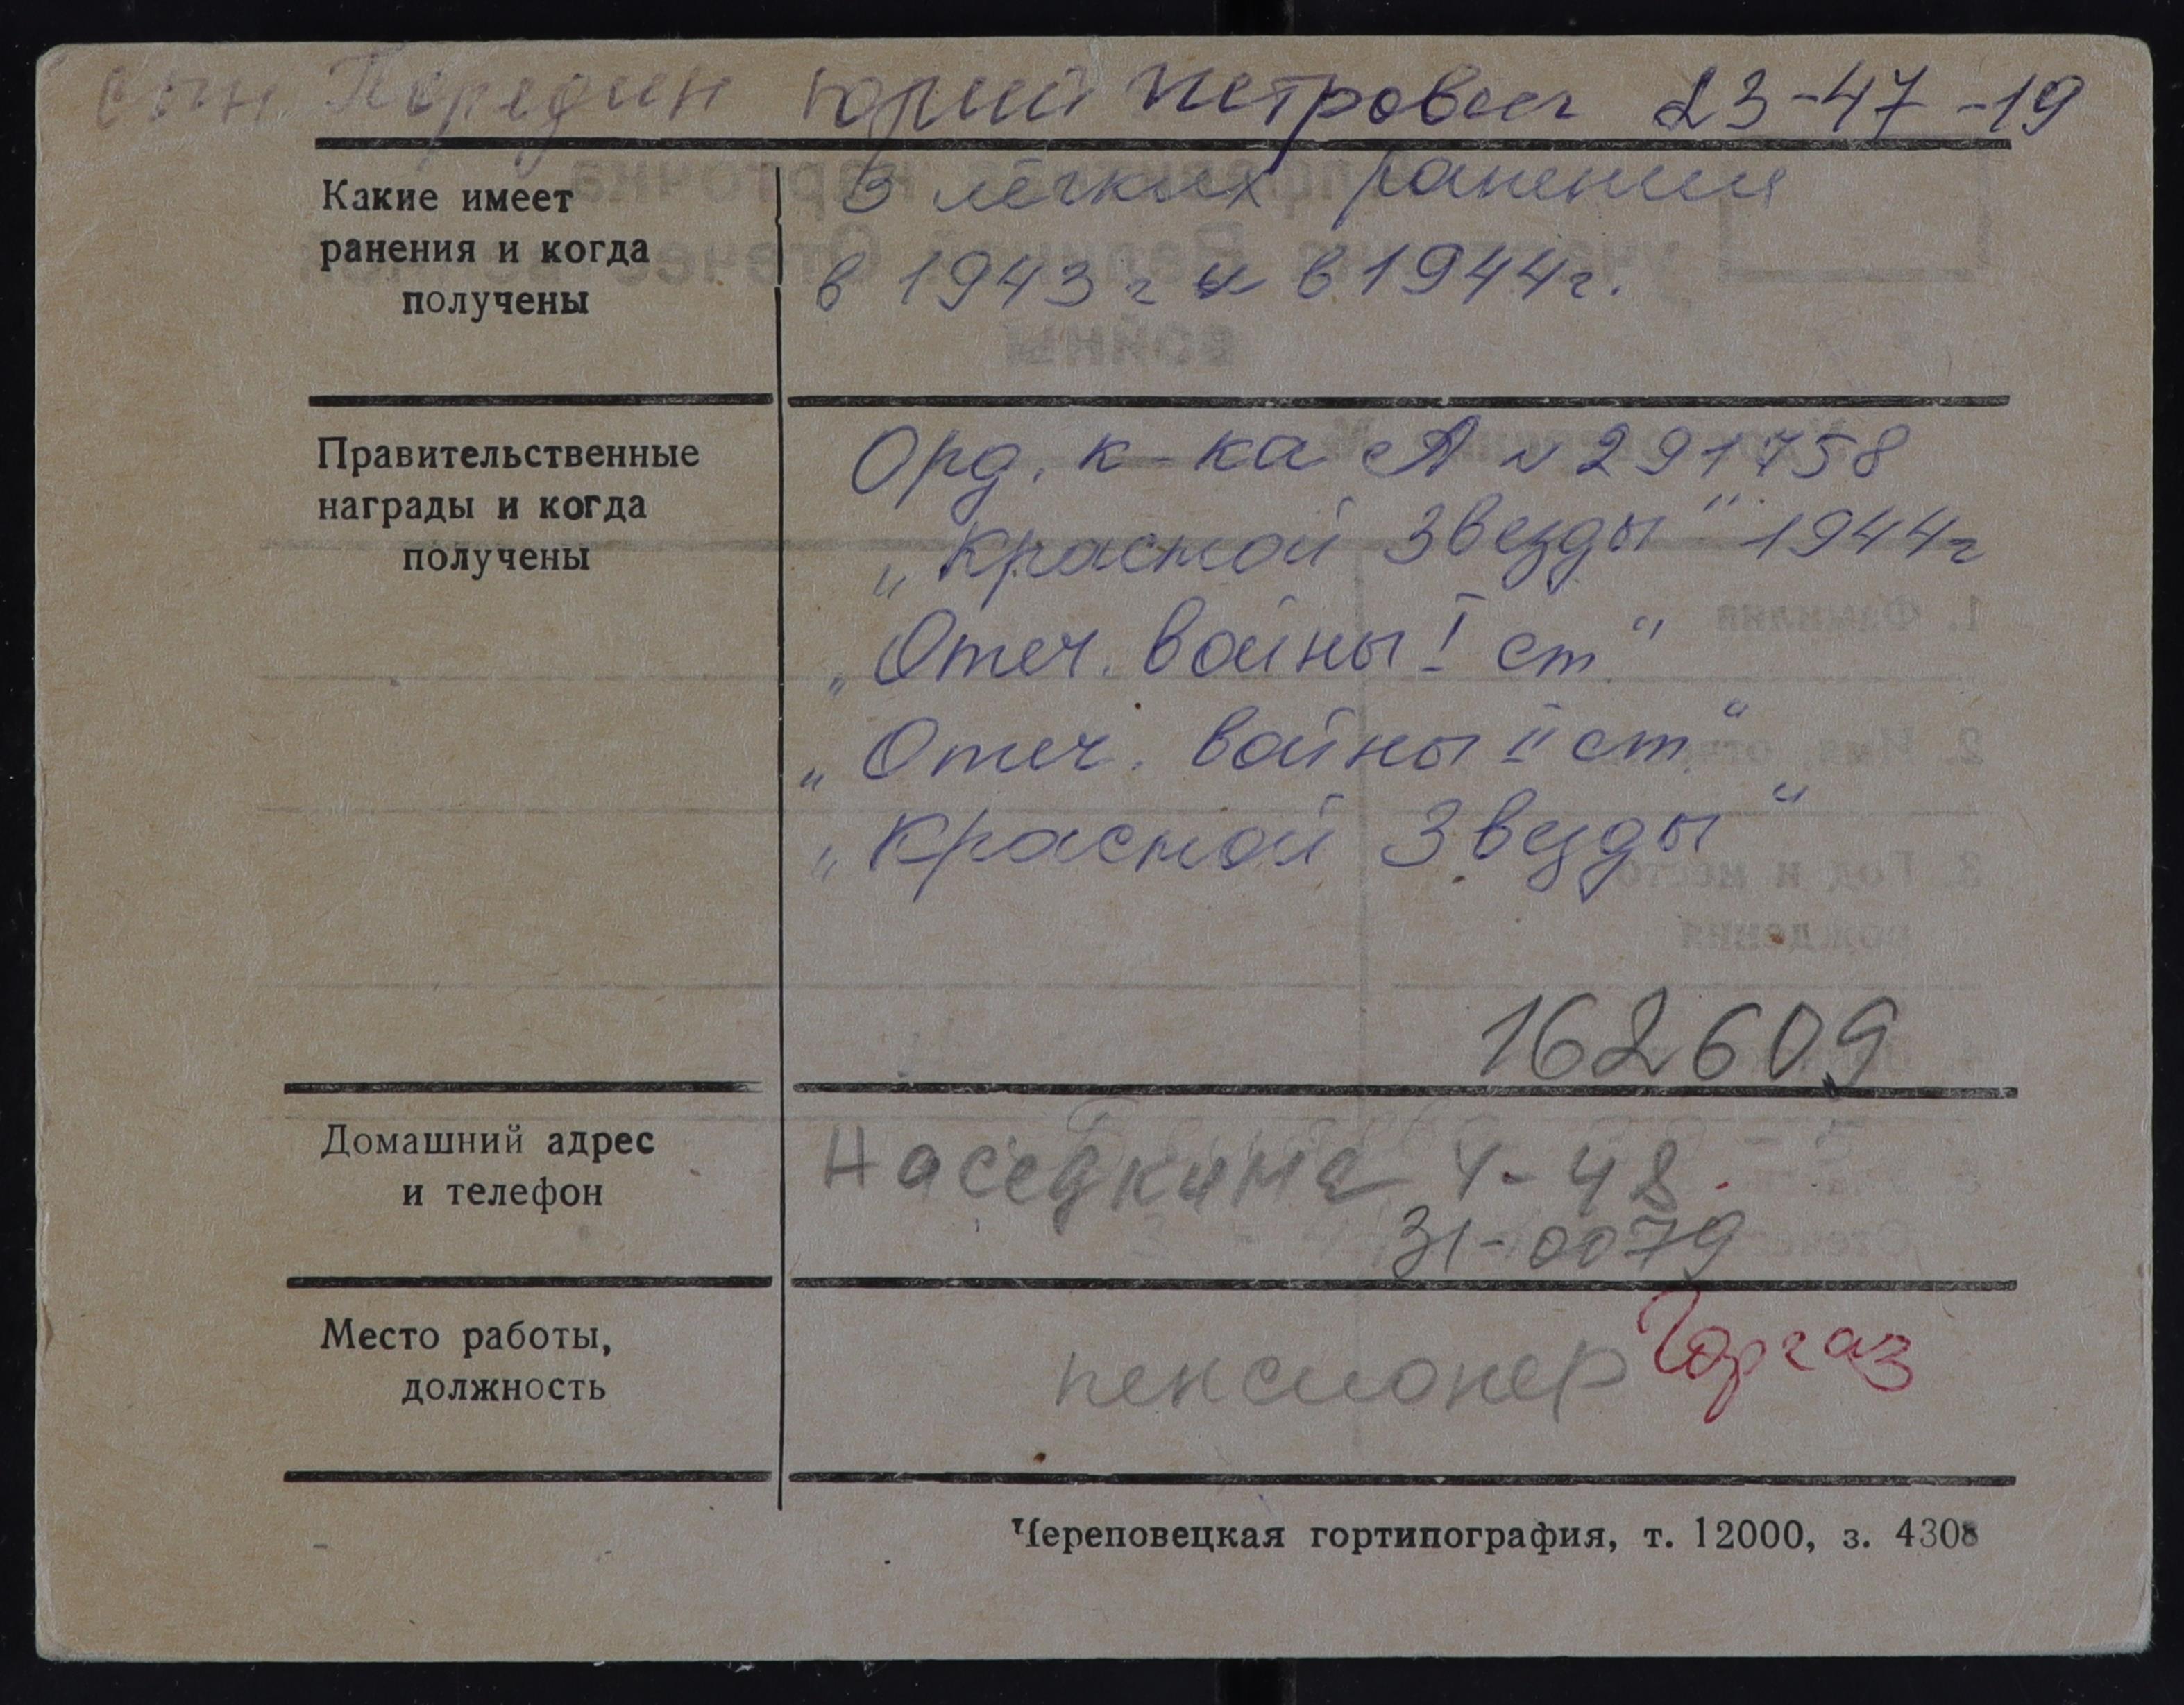 сын Передин Юрий Петрович 23-47-19
Какие имеет
ранения и когда
получены
3 легких ранения
в 1943 г и в 1944 г.
Правительственные
награды и когда
получены
Орд. к-ка А № 291758
„Красной Звезды" 1944 г
„Отеч. войны I ст"
„Отеч. войны II ст"
„Красной Звезды"
162609
Домашний адрес
и телефон
Наседкина 4-48
31-0079
Место работы,
должность
пенсионер Горгаз
Череповецкая гортипография, т. 12000, з. 4308